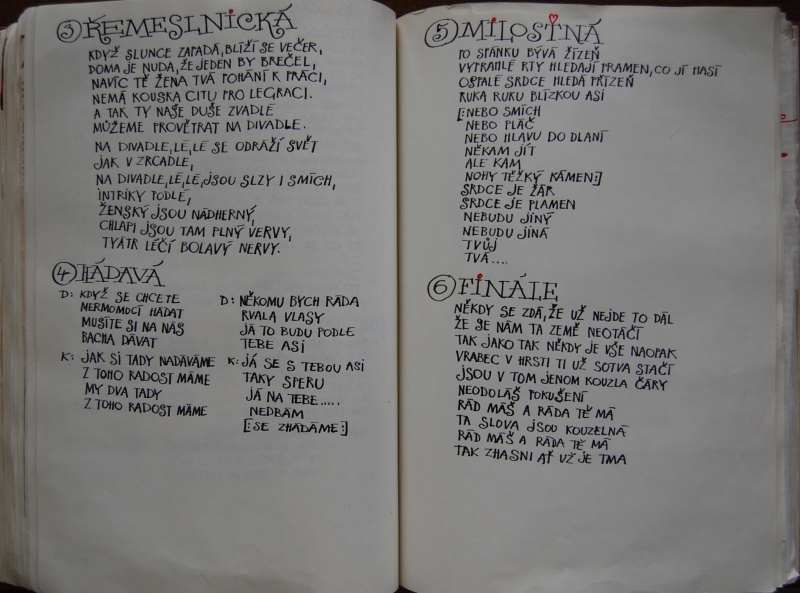 ③ ŘEMESLNICKÁ
KDYŽ SLUNCE ZAPADÁ, BLÍŽÍ SE VEČER,
DOMA JE NUDA, ŽE JEDEN BY BREČEL,
NAVÍC TĚ ŽENA TVÁ POHÁNÍ K PRÁCI,
NEMÁ KOUSKA CITU PRO LEGRACI.
A TAK TY NAŠE DUŠE ZVADLÉ
MŮŽEME PROVĚTRAT NA DIVADLE.
NA DIVADLE, LE, LE SE ODRÁŽÍ SVĚT
JAK V ZRCADLE,
NA DIVADLE, LE, LE, JSOU SLZY I SMÍCH,
INTRIKY PODLÉ,
ŽENSKÝ JSOU NÁDHERNÝ,
CHLAPI JSOU TAM PLNÝ VERVY,
TYÁTR LÉČÍ BOLAVÝ NERVY.
④ HÁDAVÁ
D: KDYŽ SE CHCETE
NERMOMOCÍ HÁDAT
MUSÍTE SI NA NÁS
BACHA DÁVAT
K: JAK SI TADY NADÁVÁME
Z TOHO RADOST MÁME
MY DVA TADY
Z TOHO RADOST MÁME
D: NĚKOMU BYCH RÁDA
RVALA VLASY
JÁ TO BUDU PODLE
TEBE ASI
K: JÁ SE S TEBOU ASI
TAKY SPERU
JÁ NA TEBE.....
NEDBÁM
[: SE ZHÁDÁME :]
⑤ MILOSTNÁ
PO SPÁNKU BÝVÁ ŽÍZEŇ
VYPRAHLÉ RTY HLEDAJÍ PRAMEN, CO JÍ HASÍ
OSPALÉ SRDCE HLEDÁ PŘÍZEŇ
RUKA RUKU BLÍZKOU ASI
[: NEBO SMÍCH
NEBO PLÁČ
NEBO HLAVU DO DLANÍ
NĚKAM JÍT
ALE KAM
NOHY TĚŽKÝ KÁMEN :]
SRDCE JE ŽÁR
SRDCE JE PLAMEN
NEBUDU JINÝ
NEBUDU JINÁ
TVŮJ
TVÁ....
⑥ FINÁLE
NĚKDY SE ZDÁ, ŽE UŽ NEJDE TO DÁL
ŽE SE NÁM TA ZEMĚ NEOTÁČÍ
TAK JAKO TAK NĚKDY JE VŠE NAOPAK
VRABEC V HRSTI TI UŽ SOTVA STAČÍ
JSOU V TOM JENOM KOUZLA ČÁRY
NEODOLÁŠ POKUŠENÍ
RÁD MÁŠ A RÁDA TĚ MÁ
TA SLOVA JSOU KOUZELNÁ
RÁD MÁŠ A RÁDA TĚ MÁ
TAK ZHASNI AŤ UŽ JE TMA